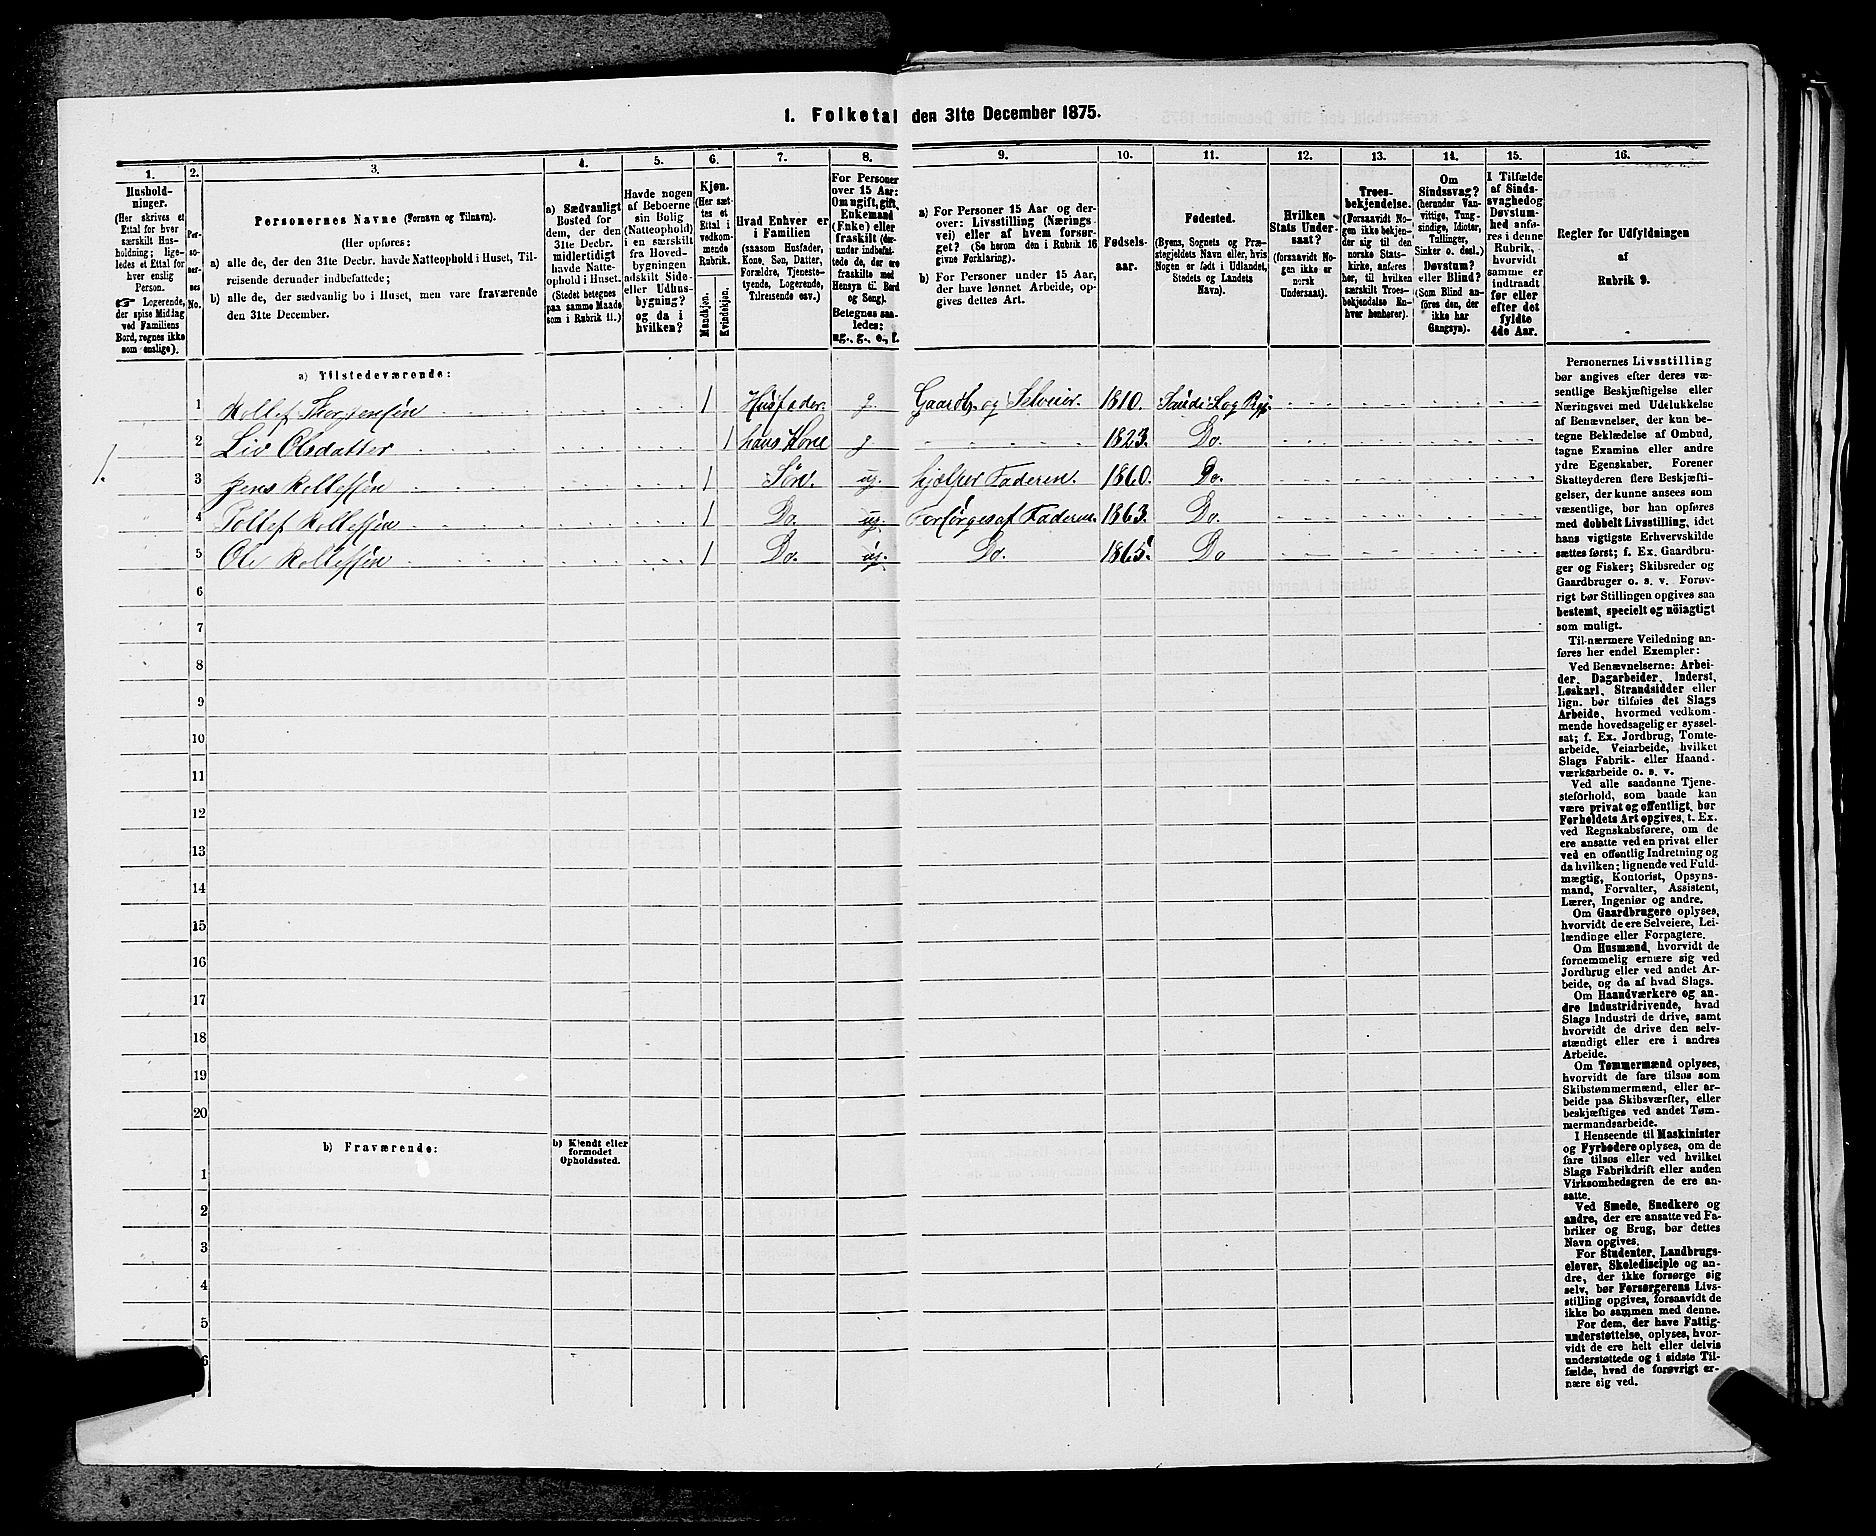 1. Folketal den 31te December 1875.
1.
Hushold-
ninger.
(Her skrives et
Ettal for hver
særskilt Hus-
holdning; lige-
ledes et Ettal for
hver enslig
Person.
☞ Logerende,
der spise Middag
ved Familiens
Bord, regnes ikke
som enslige).
2.
Per-
so-
ner-
nes
No.
3.
Personernes Navne (Fornavn og Tilnavn).
(Her opføres:
a) alle de, der den 31te Decbr. havde Natteophold i Huset, Til-
reisende derunder indbefattede;
b) alle de, der sædvanlig bo i Huset, men vare fraværende
den 31te December.
4.
a) Sædvanligt
Bosted for
dem, der den
31te Decbr.
midlertidigt
havde Natte-
ophold i Huset.
(Stedet betegnes
paa samme Maade
som i Rubrik 11.)
5.
Havde nogen
af Beboerne
sin Bolig
(Natteophold)
i en særskilt
fra Hoved-
bygningen
adskilt Side-
eller Udhus-
bygning?
og da i
hvilken?
6.
Kjøn.
(Her sæt-
tes et
Ettal i
vedkom-
mende
Rubrik.
Mandkjøn.
Kvindekjøn.
7.
Hvad Enhver er
i Familien
(saasom Husfader,
Kone, Søn, Datter,
Forældre, Tjeneste-
tyende, Logerende,
Tilreisende osv.)
8.
For Personer
over 15 Aar:
Om ugift, gift,
Enkemand
(Enke) eller
fraskilt (der-
under indbefat-
tede de, der ere
fraskilte med
Hensyn til Bord
og Seng).
Betegnes saa-
ledes:
ug., g., e., f.
9.
a) For Personer 15 Aar og der-
over: Livsstilling (Nærings-
vei) eller af hvem forsør-
get? (Se herom den i Rubrik 16
givne Forklaring).
b) For Personer under 15 Aar,
der have lønnet Arbeide, op-
gives dettes Art.
10.
Fødsels-
aar.
11.
Fødested.
(Byens, Sognets og Præ-
stegjeldets Navn eller, hvis
Nogen er født i Udlandet,
Stedets og Landets
Navn).
12.
Hvilken
Stats Under-
saat?
(forsaavidt No-
gen ikke er
norsk
Undersaat).
13.
Troes-
bekjendelse.
(Forsaavidt No-
gen ikke bekjen-
der sig til den
norske Stats-
kirke, anføres
her, til hvilken
særskilt Troes-
bekjendelse En-
hver henhører).
14.
Om
Sindssvag?
(herunder Van-
vittige, Tung-
sindige, Idioter,
Tullinger,
Sinker o. desl.)
Døvstum?
eller Blind?
(Som Blind an-
føres den, der
ikke har
Gangsyn).
15.
I Tilfælde
af Sinds-
svaghed og
Døvstum-
hed anfø-
res i denne
Rubrik,
hvorvidt
samme er
indtraadt
før eller
efter det
fyldte
4de Aar.
16.
Regler for Udfyldningen
af
Rubrik 9.
a) Tilstedeværende:
1 Rollef Thorgensen 1 Husfader. g. Gaardb. og Selveier. 1810.
2 Liv Olsdatter 1 hans Kone g 1823. Do.
1. 3 Jens Rollefsen 1 Søn. ug. hjælper Faderen. 1860. Do.
4 Tollef Rollefsen 1 Do. ug. Forsørges af Faderen. 1863. Do.
5 Ole Rollefsen 1 Do. ug. Do. 1865 Do
6
7
8
9
10
11
12
13
14
15
16
17
18
19
20
b) Fraværende:
b) Kjendt eller
formodet
Opholdssted.
1
2
3
4
5
6
Personernes Livsstilling
bør angives efter deres væ-
sentlige Beskjæftigelse eller
Næringsvei med Udelukkelse
af Benævnelser, der kun be-
tegne Beklædelse af Ombud,
tagne Examina eller andre
ydre Egenskaber. Forener
Skatteyderen flere Beskjæfti-
gelser, der kunne ansees som
væsentlige, bør han opføres
med dobbelt Livsstilling, idet
hans vigtigste Erhvervskilde
sættes først; f. Ex. Gaardbru-
ger og Fisker; Skibsreder og
Gaardbruger o. s. v. Forøv-
rigt bør Stillingen opgives saa
bestemt, specielt og nöiagtigt
som muligt.
Til nærmere Veiledning an-
føres her endel Exempler:
Ved Benævnelserne: Arbei-
der, Dagarbeider, Inderst,
Løskarl, Strandsidder eller
lign. bør tilføies det Slags
Arbeide, hvormed vedkom-
mende hovedsagelig er syssel-
sat; f. Ex. Jordbrug, Tomte-
arbeide, Veiarbeide, hvilket
Slags Fabrik- eller Haand-
værksarbeide o. s. v.
Ved alle saadanne Tjene-
steforhold, som baade kan
være privat og offentligt, bør
Forholdets Art opgives, t. Ex.
ved Regnskabsførere, om de
ere ansatte ved en privat eller
ved en offentlig Indretning og
da hvilken; lignende ved Fuld-
mægtig, Kontorist, Opsyns-
mand, Forvalter, Assistent,
Lærer, Ingeniør og andre.
Om Gaardbrugere oplyses,
hvorvidt de ere Selveiere, Lei-
lændinge eller Forpagtere.
Om Husmænd, hvorvidt de
fornemmelig ernære sig ved
Jordbrug eller ved andet Ar-
beide, og da af hvad Slags.
Om Haandværkere og an-
dre Industridrivende, hvad
Slags Industri de drive, samt
hvorvidt de drive den selv-
stændigt eller ere i andres
Arbeide.
Om Tømmermænd oplyses,
hvorvidt de fare tilsøs som
Skibstømmermænd, eller ar-
beide paa Skibsværfter, eller
beskjæftiges ved andet Tøm-
mermandsarbeide.
I Henseende til Maskinister
og Fyrbødere oplyses, om de
fare tilsøs eller ved hvilket
Slags Fabrikdrift eller anden
Virksomhedsgren de ere an-
satte.
Ved Smede, Snedkere og
andre, der ere ansatte ved Fa-
briker og Brug, bør dettes
Navn opgives.
For Studenter, Landbrugs-
elever, Skoledisciple og an-
dre, der ikke forsørge sig
selv, bør Forsørgerens Livs-
stilling opgives, forsaavidt de
ikke bo sammen med denne.
For dem, der have Fattig-
understøttelse, oplyses, hvor-
vidt de ere helt eller delvis
understøttede og i sidste Til-
fælde, hvad de forøvrigt er-
nære sig ved.